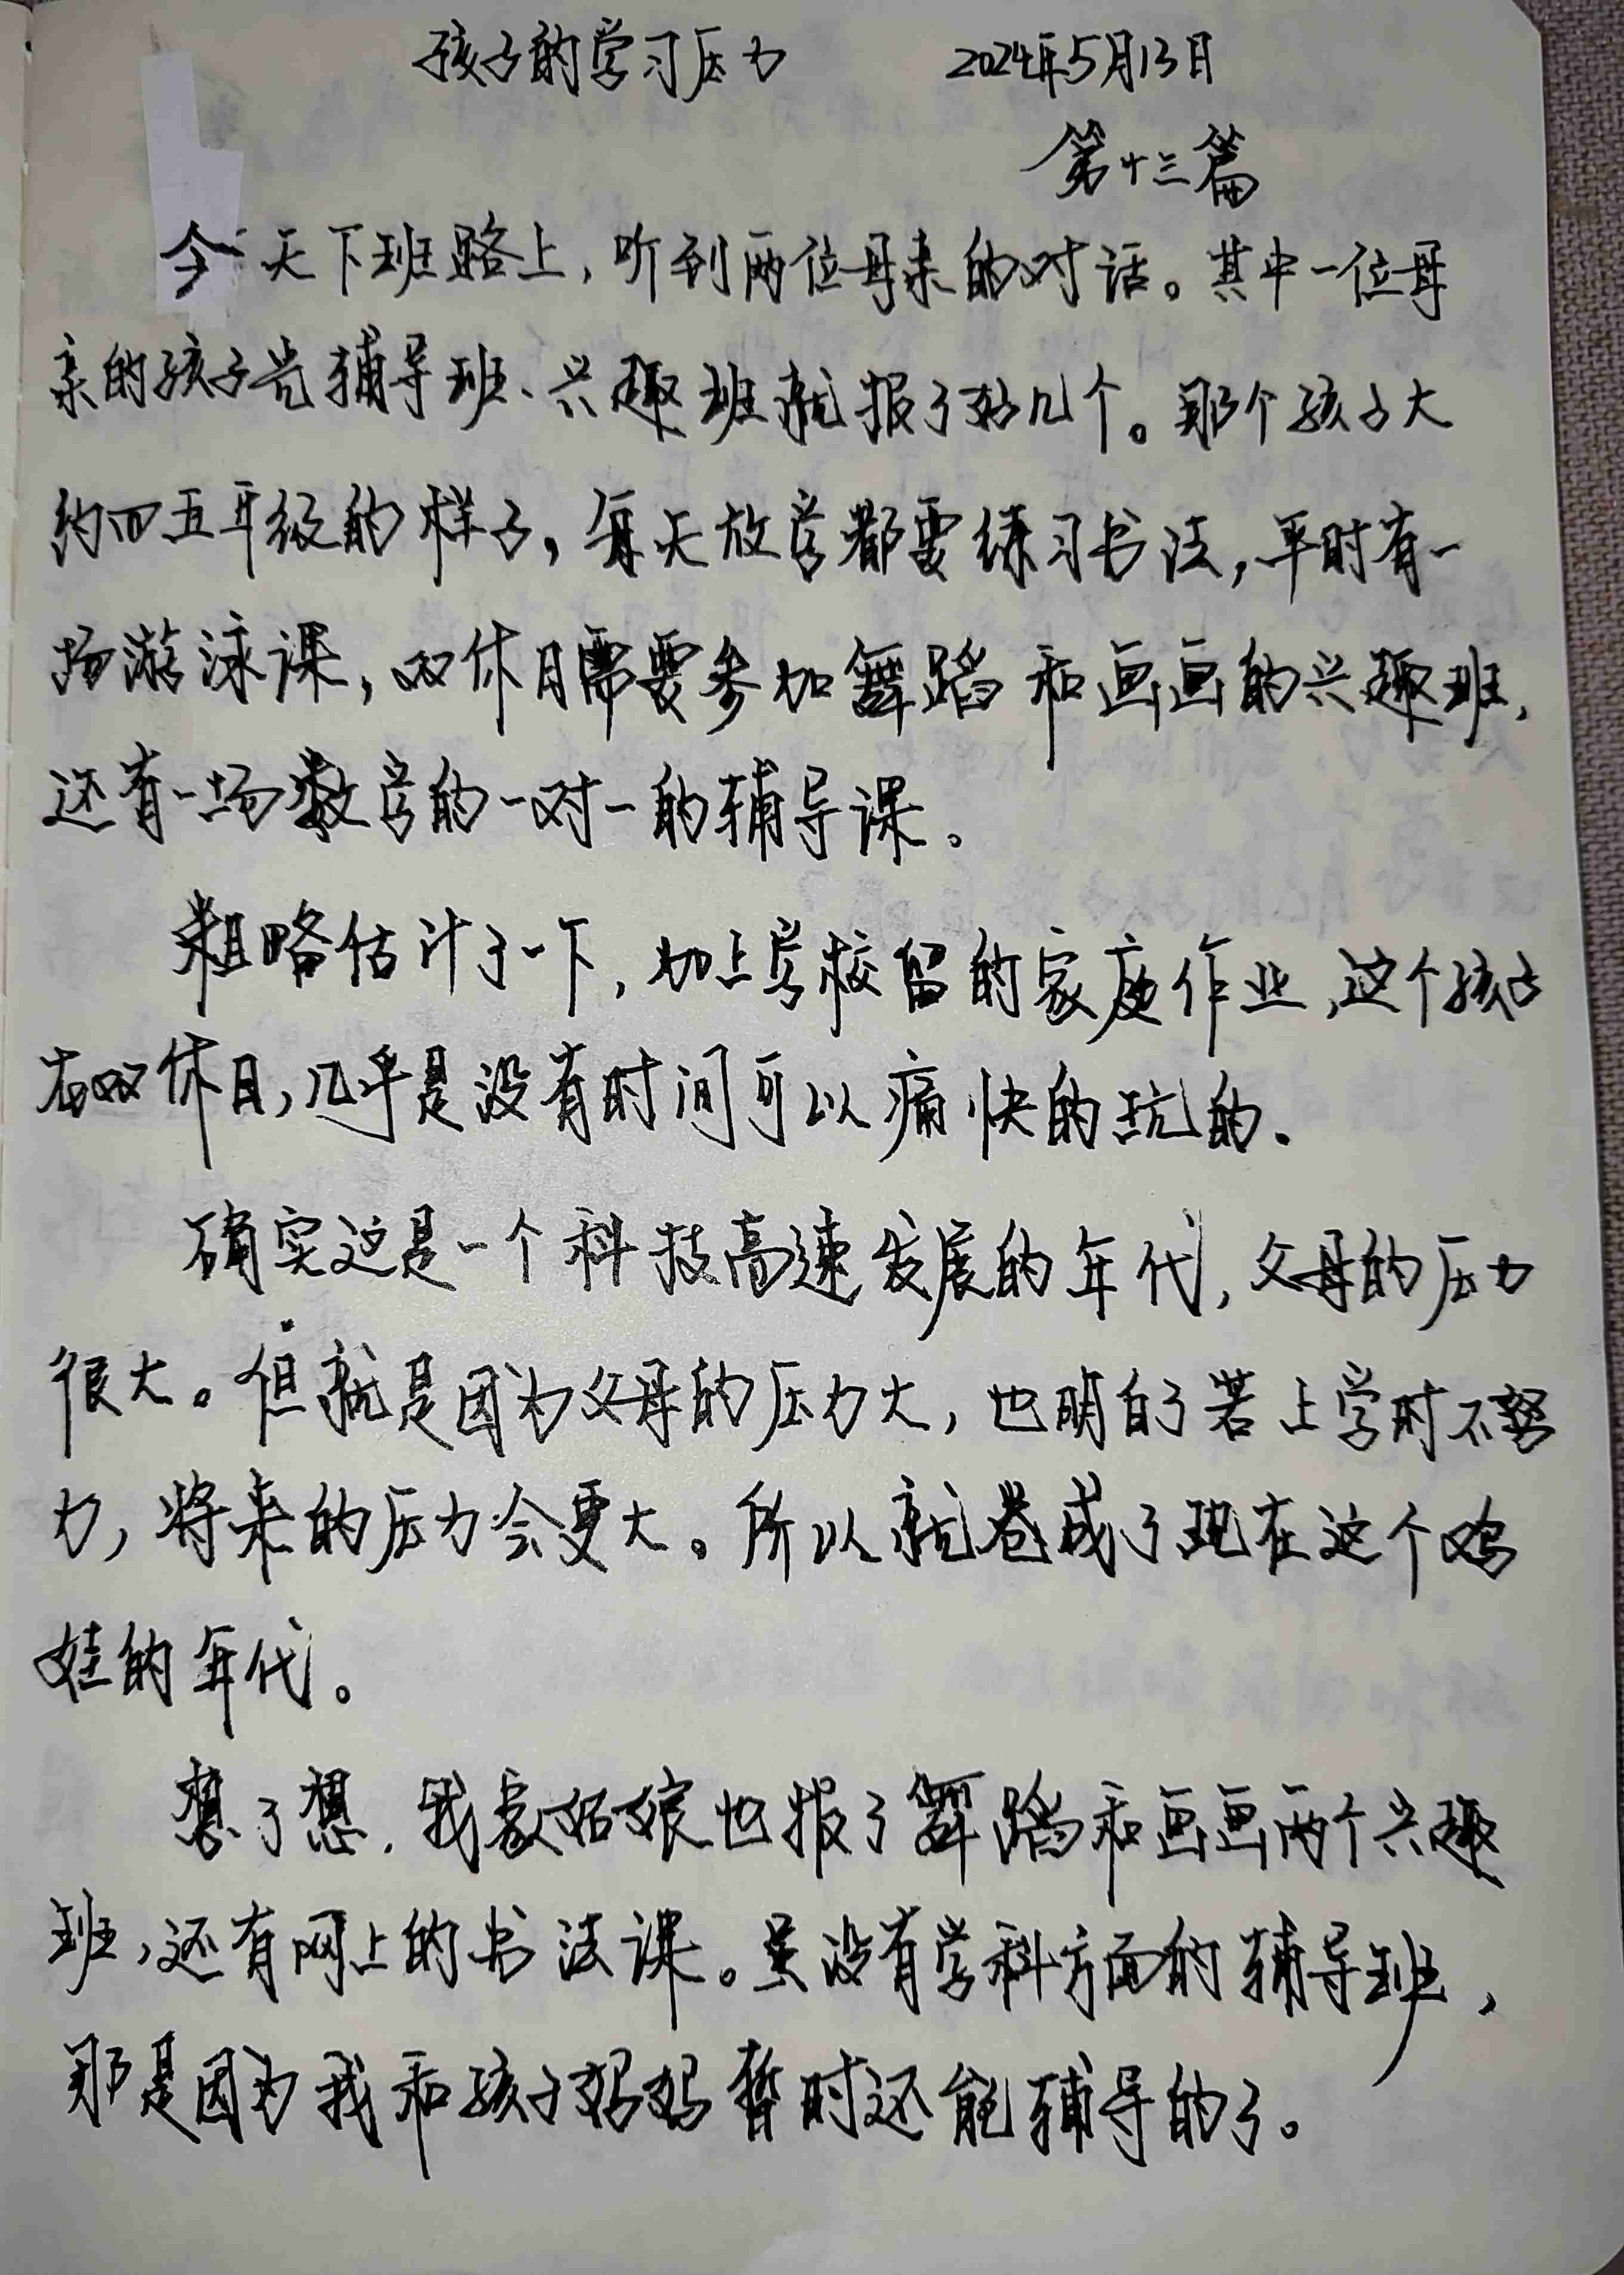 孩子的学习压力 2024年5月13日
第十三篇
今天下班路上,听到两位母亲的对话。其中一位母
亲的孩子光辅导班、兴趣班就报了好几个。那个孩子大
约四五年级的样子,每天放学都要练习书法,平时有一
场游泳课,双休日需要参加舞蹈和画画的兴趣班,
还有一场数学的一对一的辅导课。
粗略估计了一下,加上学校留的家庭作业,这个孩子
在双休日,几乎是没有时间可以痛快的玩的.
确实这是一个科技高速发展的年代,父母的压力
很大。但就是因为父母的压力大,也明白了若上学时不努
力,将来的压力会更大。所以就卷成了现在这个鸡
娃的年代。
想了想.我家姑娘也报了舞蹈和画画两个兴趣
班,还有网上的书法课。虽没有学科方面的辅导班,
那是因为我和孩子妈妈暂时还能辅导的了。